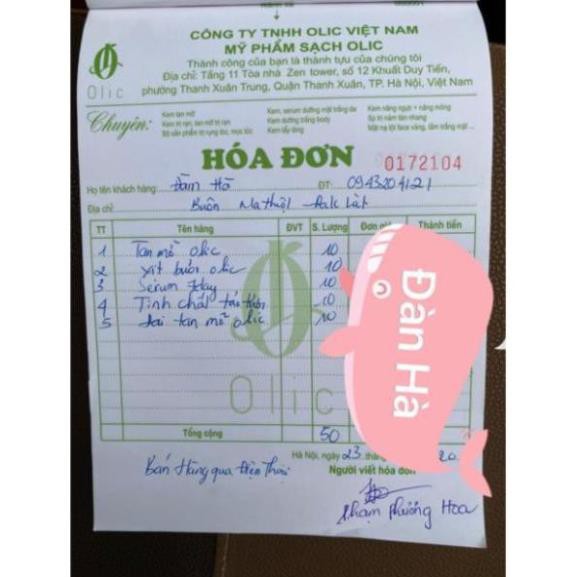 CÔNG TY TNHH OLIC VIỆT NAM
MỸ PHẨM SẠCH OLIC
Thành công của bạn là thành tựu của chúng tôi
Địa chỉ: Tầng 11 Tòa nhà Zen tower, số 12 Khuất Duy Tiến,
phường Thanh Xuân Trung, Quận Thanh Xuân, TP. Hà Nội, Việt Nam
Olic
Chuyên:
Kem tan mỡ
Kem trị rạn, tan mỡ trị rạn
Bộ sản phẩm trị rụng tóc, mọc tóc
Kem, serum dưỡng mặt trắng da
Kem dưỡng trắng body
Kem tẩy lông
Kem nâng ngực + nâng mông
Sp trị nám tàn nhang
Mặt nạ lột face vàng, tắm trắng mặt ...
HÓA ĐƠN 0172104
Họ tên khách hàng: Đàm Hà ĐT: 0943204121
Địa chỉ: Buôn Mathuột
TT Tên hàng ĐVT S. Lượng Đơn Thành tiền
1 Tan mỡ olic 10
2 xịt bưởi olic 10
3 Serum 7day 10
4 Tinh chất 10
5 đai tan mỡ olic 10
Olic
Tổng cộng 50
Hà Nội, ngày 23 20
Bán Hàng qua Điện Thoại
Người viết hóa đơn
Phạm Phương Hoa
Đàn Hà